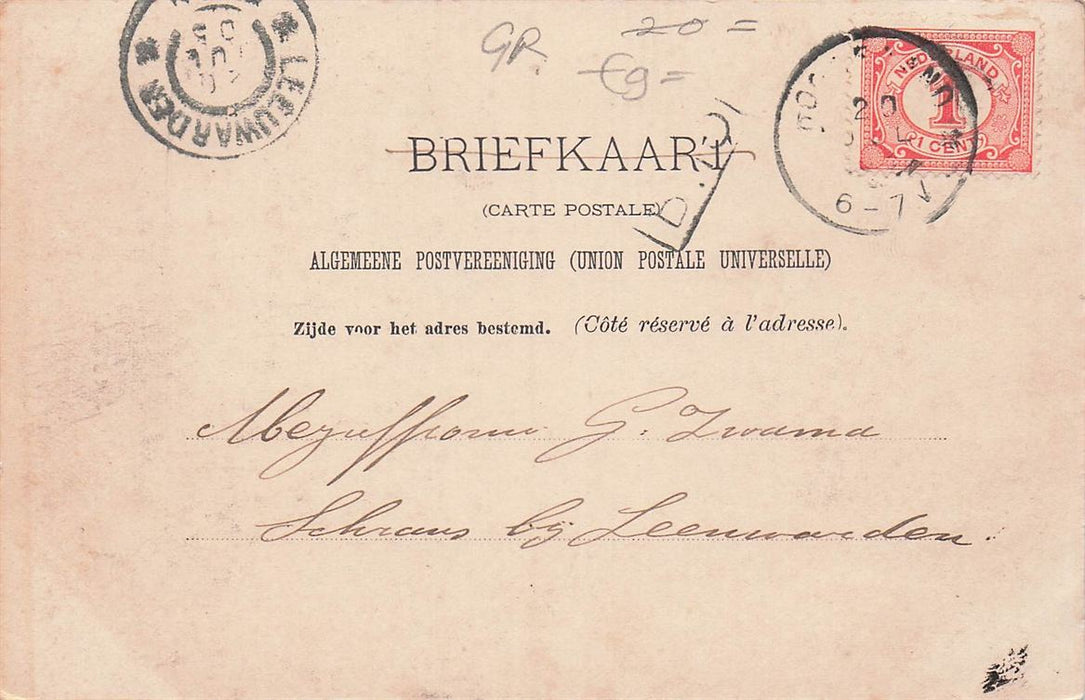 LEEUWARDEN
GR.
20=
€9=
NEDERLAND
1
1 CENT
20
6-7
BRIEFKAART
(CARTE POSTALE)
ALGEMEENE POSTVEREENIGING (UNION POSTALE UNIVERSELLE)
Zijde voor het adres bestemd. (Côté réservé à l'adresse).
Mejuffrouw G. Zwama
Schrans bij Leeuwarden.